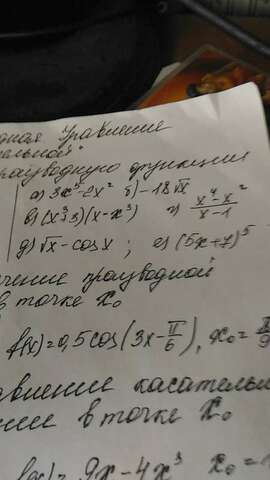 дная Уравнение
ельной"
производную функции
а) 3x⁵-2x² б) -18√x
в) (x²+3)(x-x³) г) (x⁴-x²)/(x-1)
д) √x - cosx; е) (5x+7)⁵
ачение производной
в точке x₀
f(x)=0,5cos(3x-π/6), x₀=π/9
авнение касательн
ции в точке x₀
f(x)= 9x-4x³ x₀=